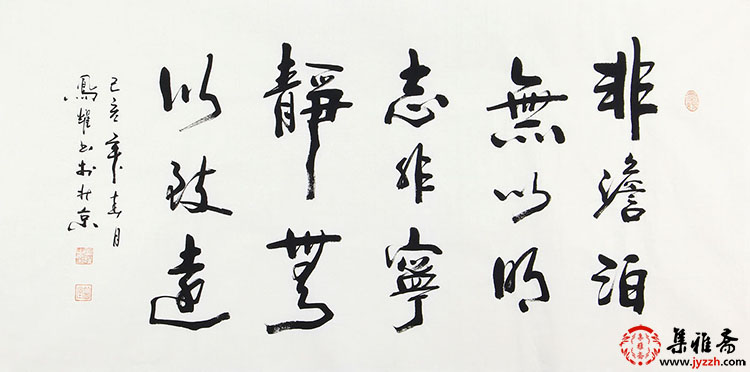 非澹泊
無以明
志非寧
靜無
以致遠
己亥年春月
鳳耀书於北京
集雅斋
www.jyzzh.com